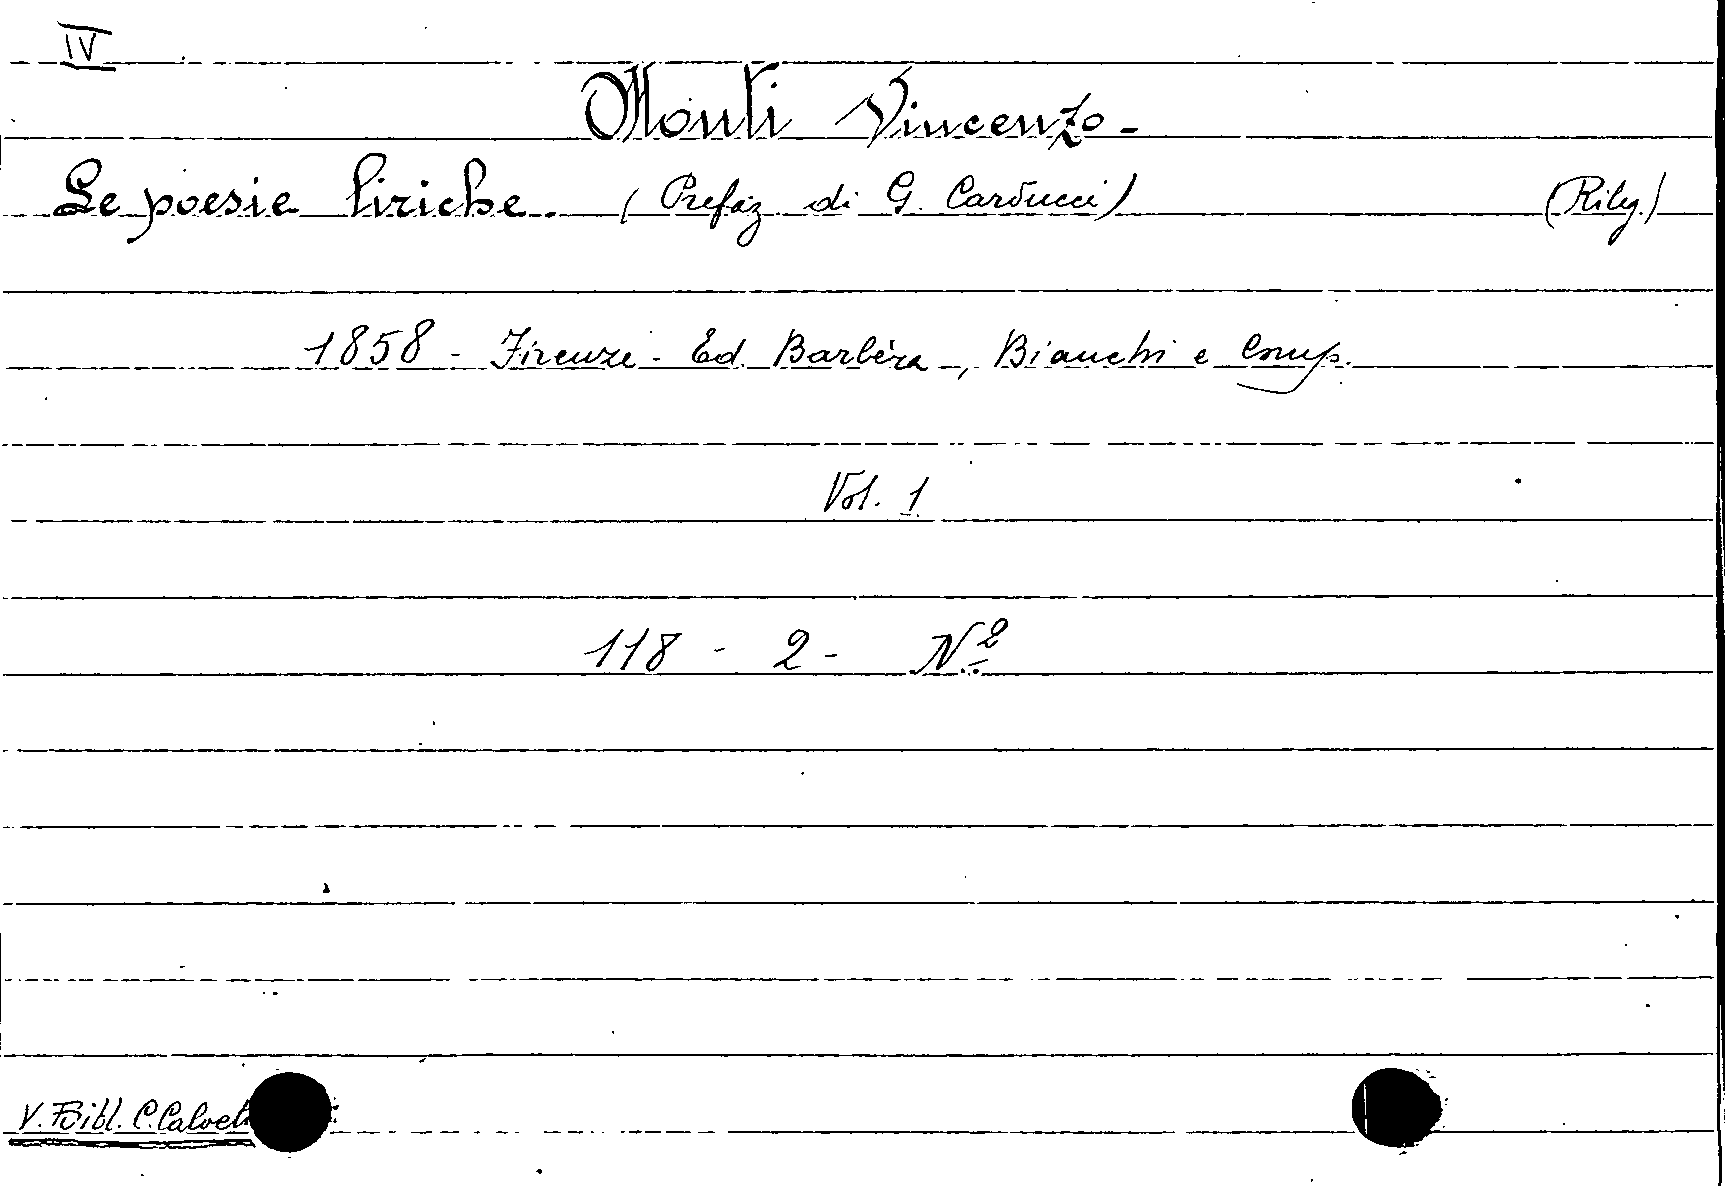 IV
Monti Vincenzo -
Le poesie liriche. (Prefaz di G. Carducci) (Rileg.)
1858 - Firenze - Ed. Barbèra, Bianchi e Comp.
Vol. 1
118 - 2 - Nº 2
V. Bibl. C. Calvet